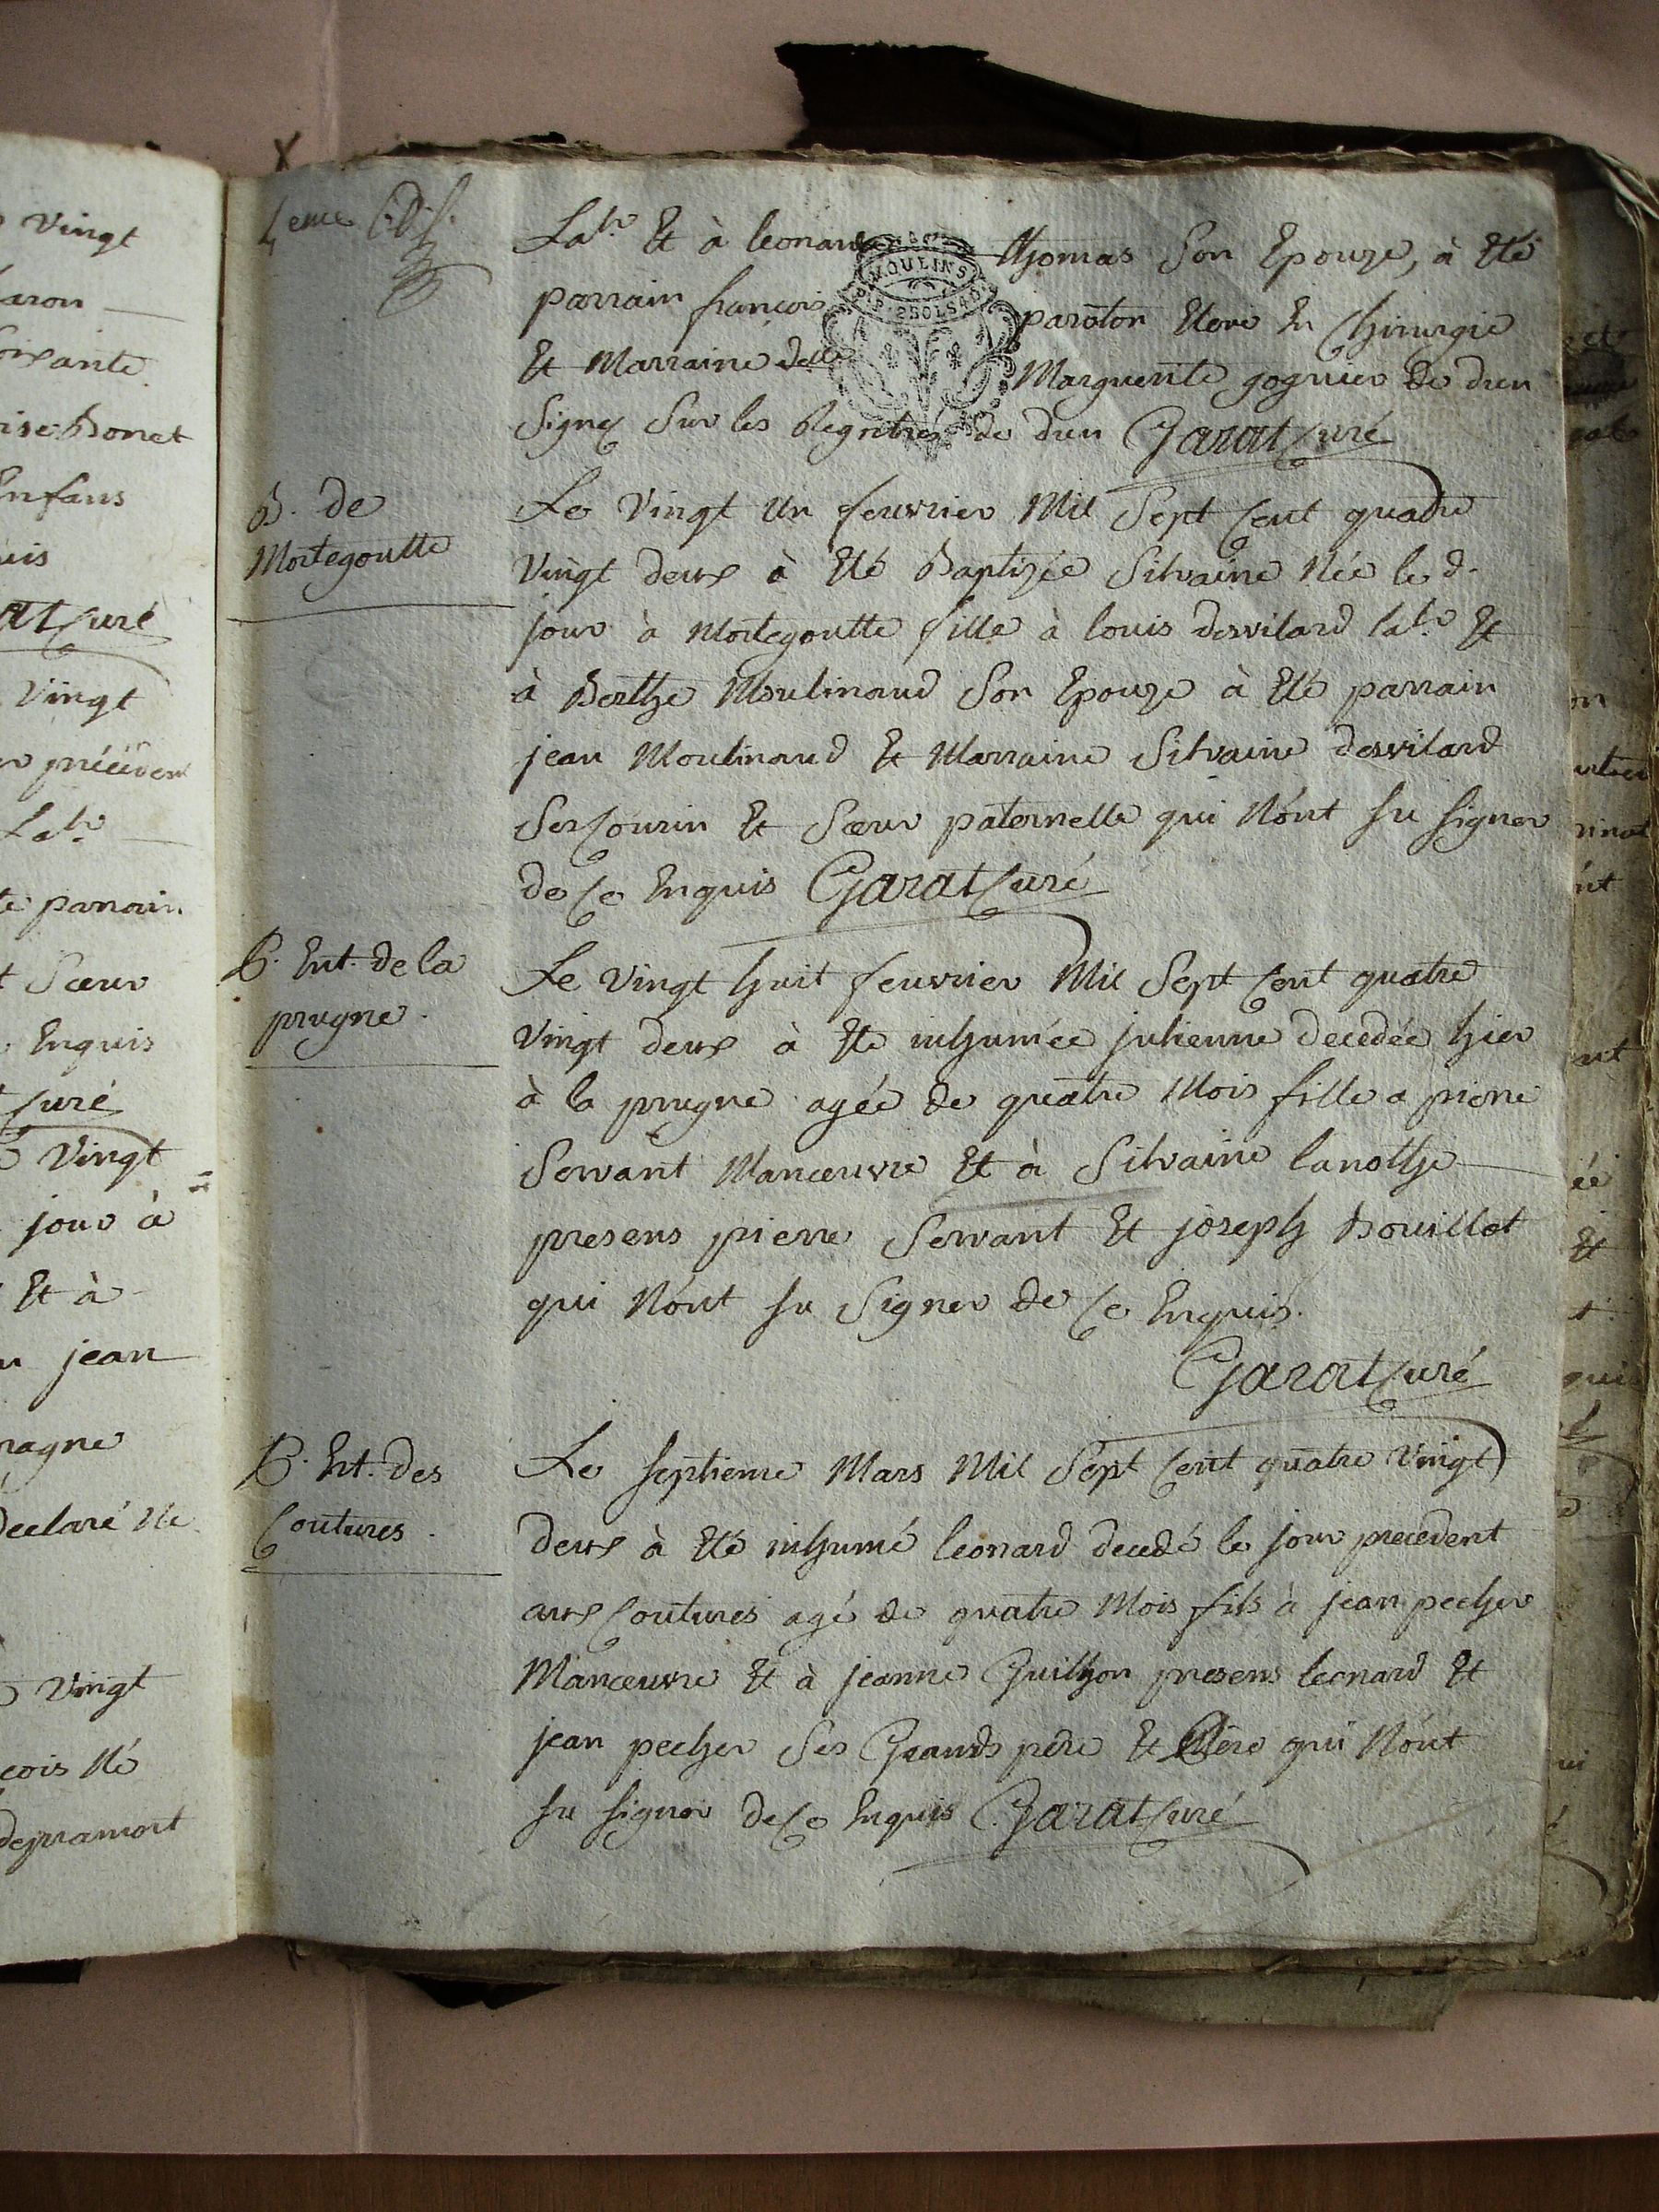 Vingt
aron
oixante.
ise Bonet
Enfans
uis
at Curé
Vingt
précédent
Labr
parain
Sœur
Enquis
Curé
Vingt
jour à
Et à
jean
magne
declaré Ne
Vingt
cois Né
depramort
4eme
Labr. Et à leonarde thomas Son Epouze, à Eté
parrain françois paroton Eleve En Chirurgie
Et Marraine delle Marguerite gognier de dun
MOULINS
Signés Sur les Registres de dun Garat Curé
B. de
Mortegoutte
Le Vingt Un feuvrier Mil Sept Cent quatre
Vingt deux à Eté Baptizée Silvaine Née le d.
jour à Mortegoutte fille à louis desvilard labr. Et
à Berthe Moulinaud Son Epouze à Eté parrain
jean Moulinaud Et Marraine Silvaine desvilard
Ses Cousin Et Sœur paternelle qui N'ont su signer
de Ce Enquis Garat Curé
P. Ent. de la
prugne.
Le Vingt huit feuvrier Mil Sept Cent quatre
Vingt deux à Eté inhumée julienne decedée hier
à la prugne agée de quatre Mois fille a pierre
Servant Manœuvre Et à Silvaine lanothe
presens pierre Servant Et joseph Bouillot
qui N'ont su Signer de Ce Enquis.
Garat Curé
P. Ent. des
Coutures.
Le septieme Mars Mil Sept Cent quatre Vingt
deux à Eté inhumé leonard decedé le jour precedent
aux Coutures agé de quatre Mois fils à jean pecher
Manœuvre Et à jeanne Guilhon presens leonard Et
jean pecher Ses Grands pere Et Père qui N'ont
su signer de Ce Enquis Garat Curé